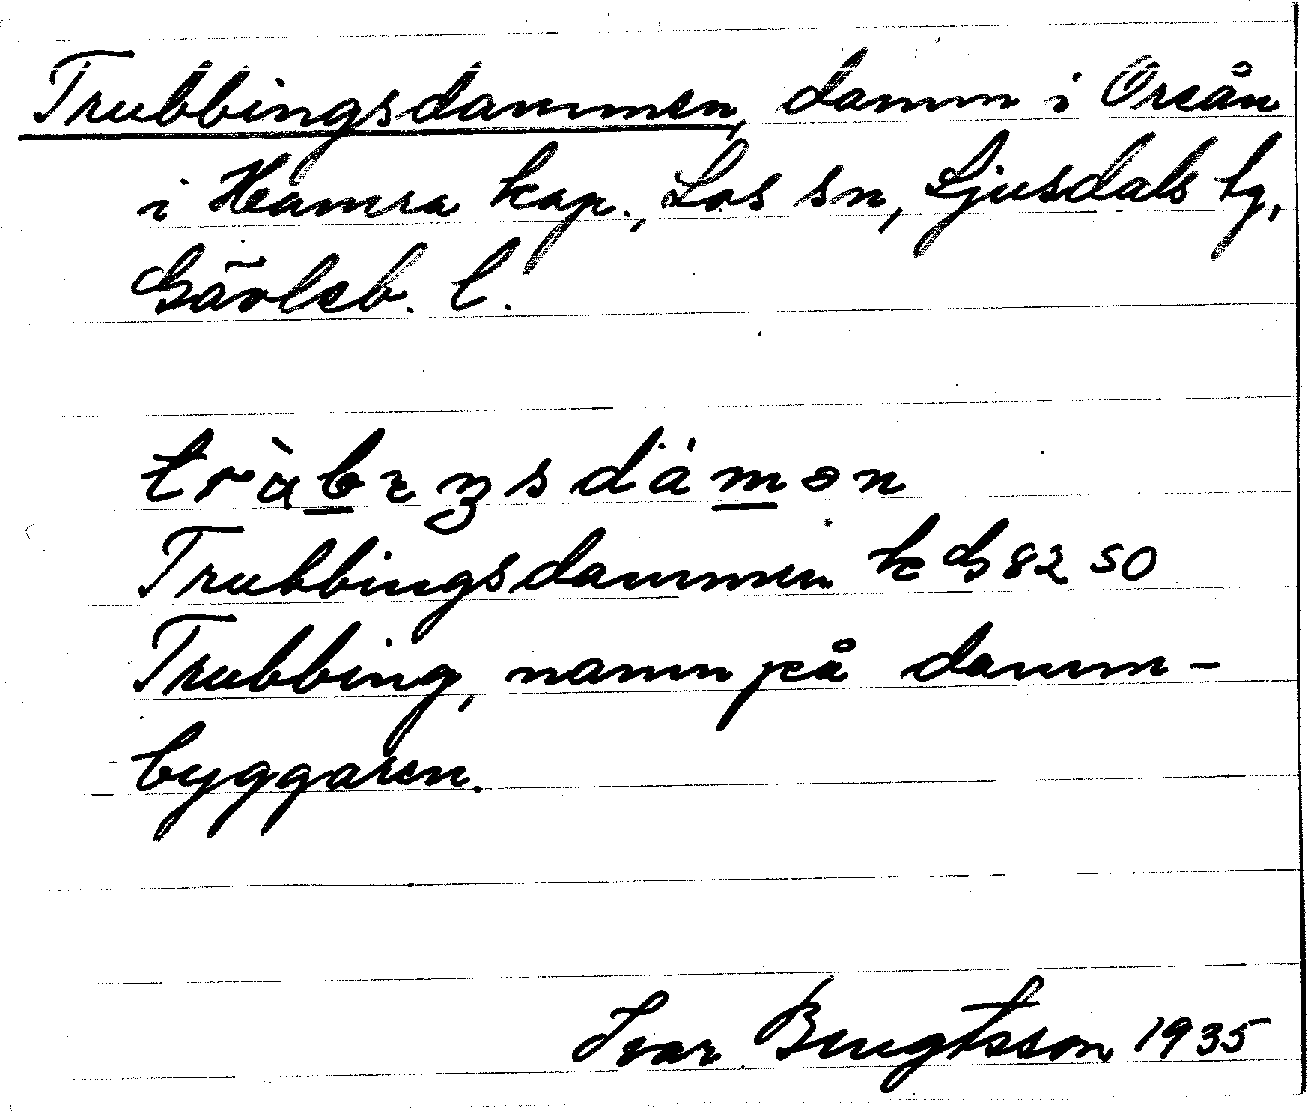 Trubbingsdammen, damm i Oreån
i Hamra kap., Los sn, Ljusdals tg,
Gävleb. l.
tràbıŋsdámən
Trubbingsdammen k G 82 SO
Trubbing, namn på damm-
byggaren.
Ivar Bengtsson 1935